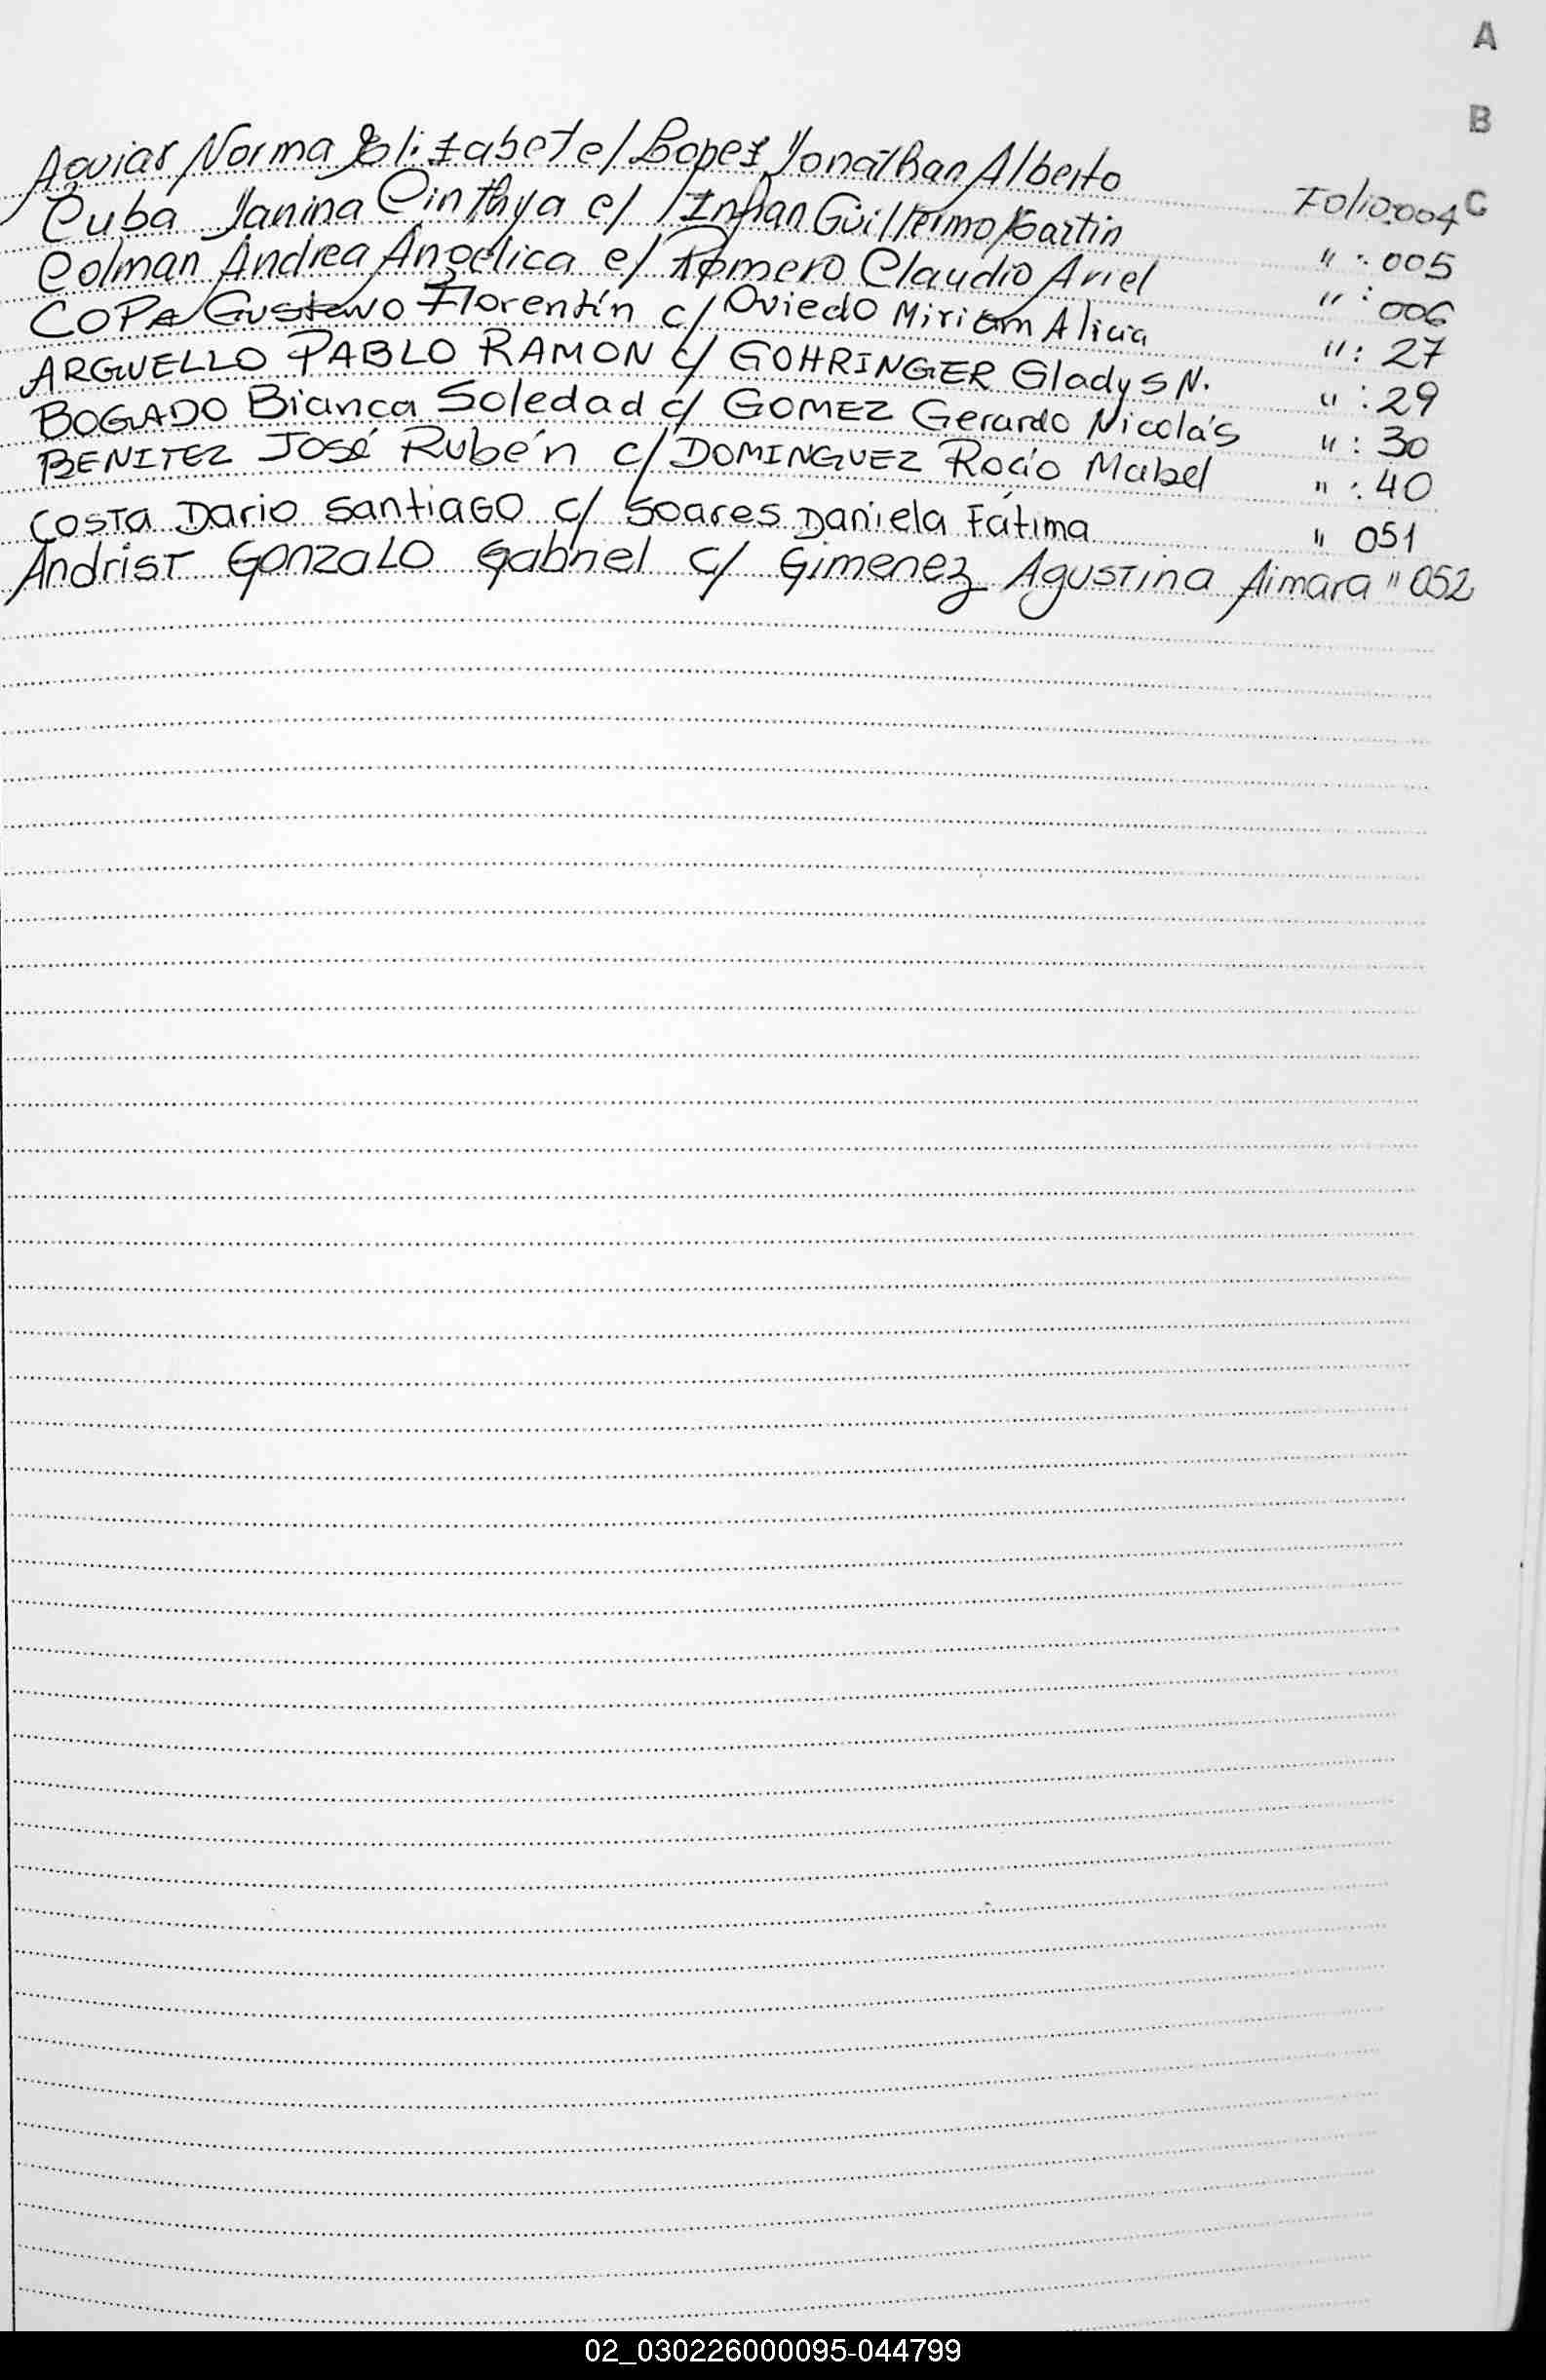 A
B
C
Aguiar Norma Elizabet c/ Lopez Jonathan Alberto Folio:004
Cuba Janina Cinthya c/ Insfran Guillermo Martin " : 005
Colman Andrea Angelica c/ Romero Claudio Ariel " : 006
COPA Gustavo Florentín c/ Oviedo Miriam Alicia " : 27
ARGUELLO PABLO RAMON c/ GOHRINGER Gladys N. " : 29
BOGADO Bianca Soledad c/ GOMEZ Gerardo Nicolás " : 30
BENITEZ José Rubén c/ DOMINGUEZ Rocío Mabel " : 40
COSTA Dario Santiago c/ Soares Daniela Fátima " 051
Andrist Gonzalo Gabriel c/ Gimenez Agustina Aimara " 052
02_030226000095-044799